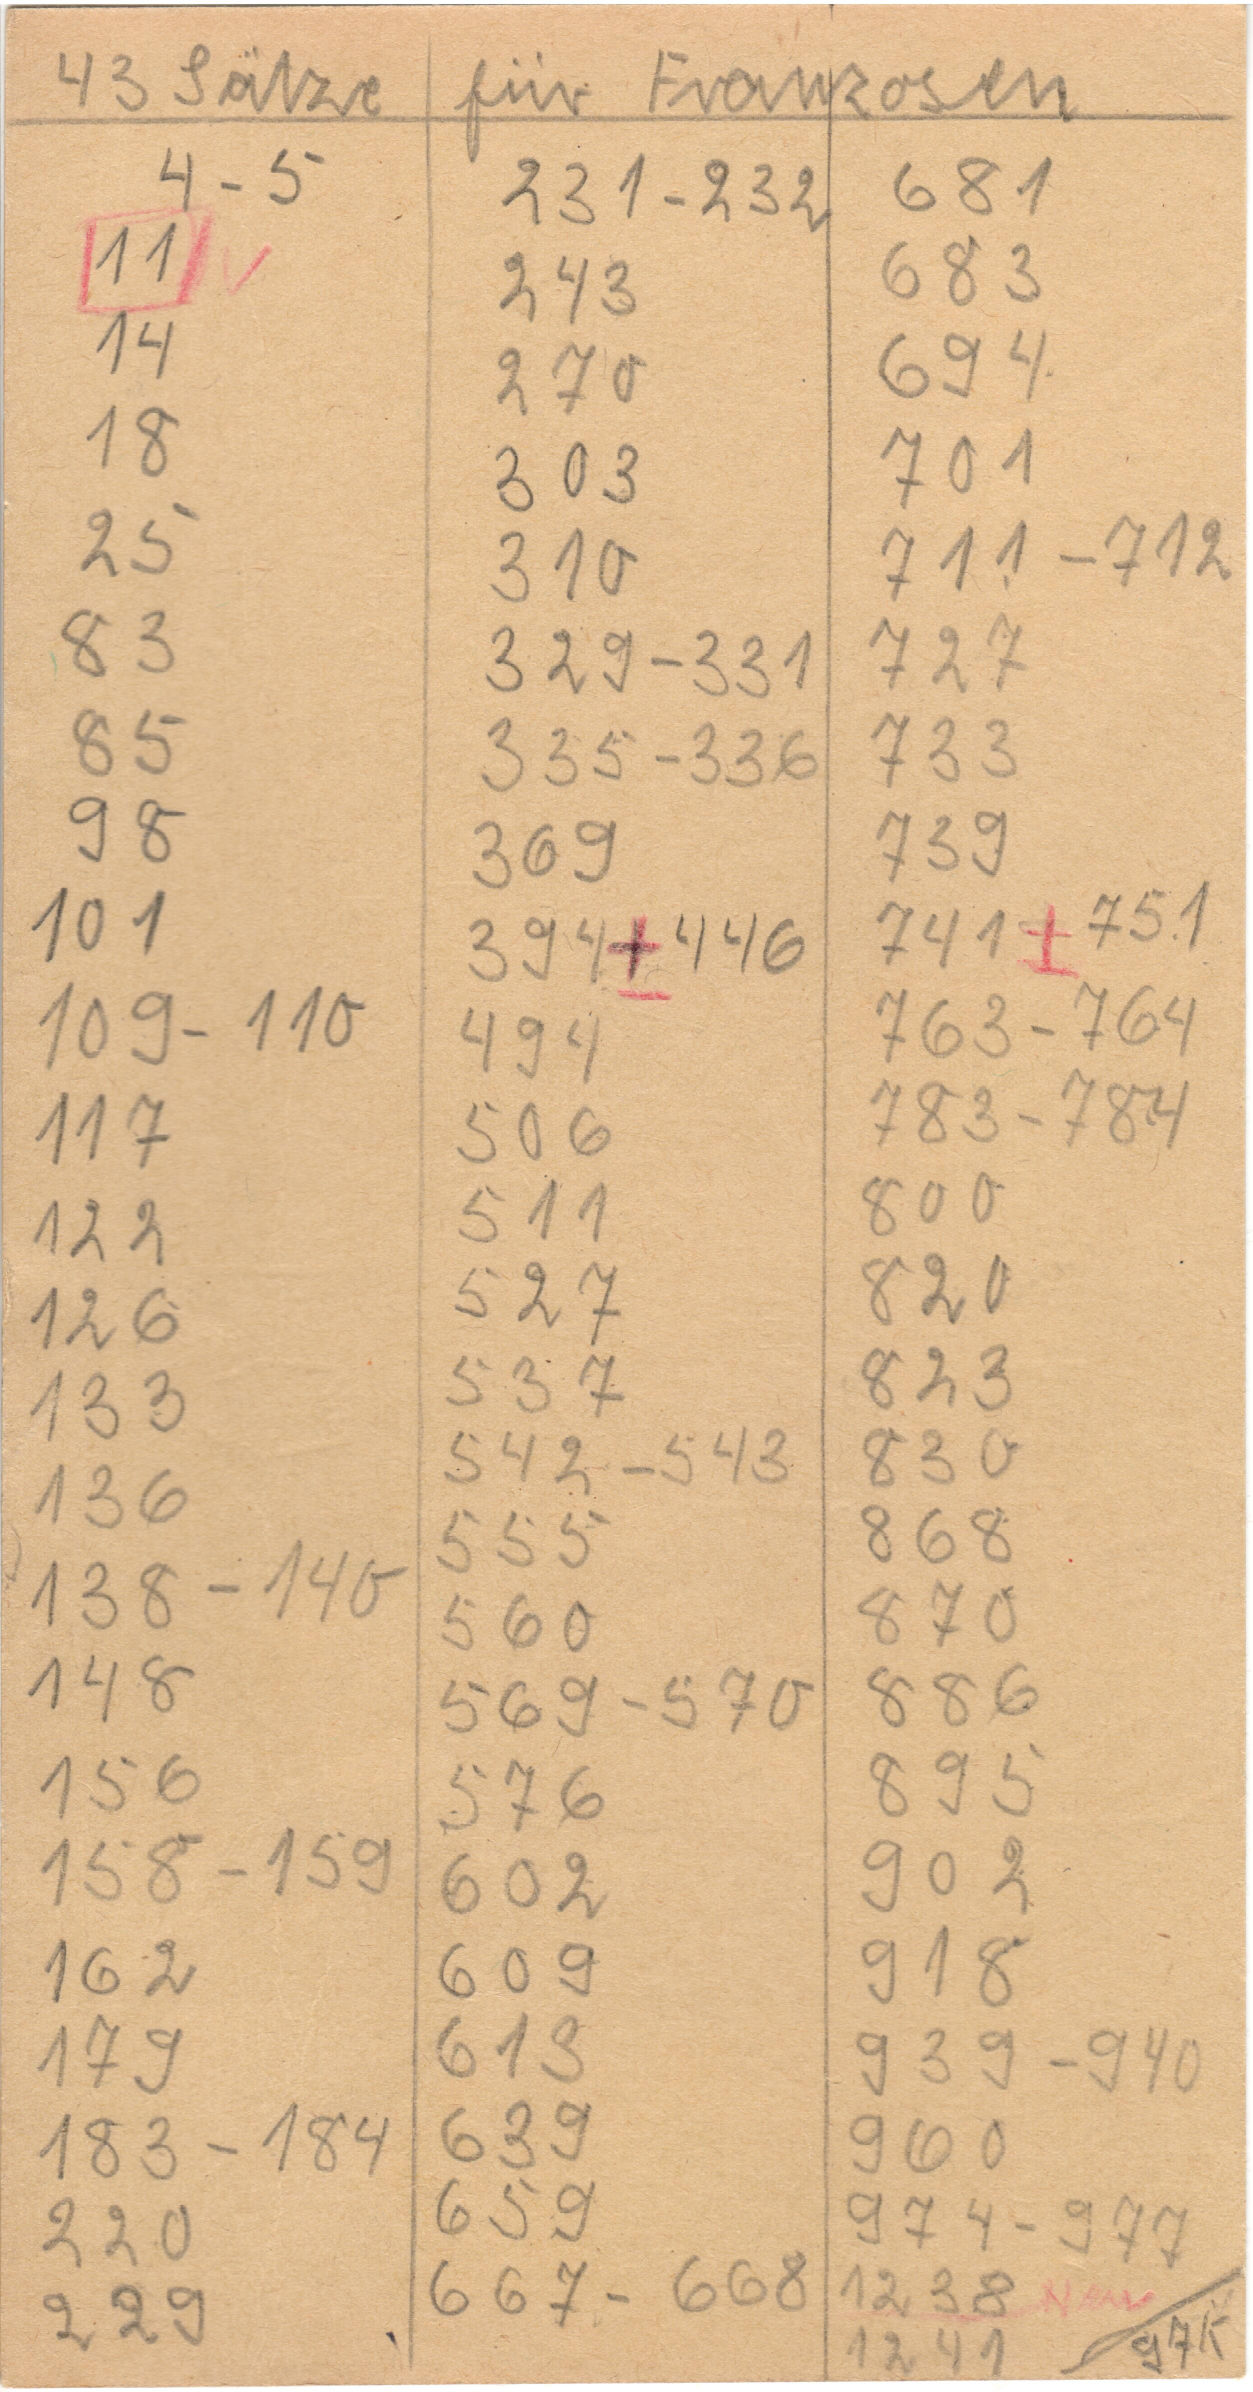 43 Sätze für Franzosen
4 - 5
11 V
14
18
25
83
85
98
101
109 - 110
117
122
126
133
136
138 - 140
148
156
158 - 159
162
179
183 - 184
220
229
231 - 232
243
270
303
310
329 - 331
335 - 336
369
394 ± 446
494
506
511
527
537
542 - 543
555
560
569 - 570
576
602
609
613
639
659
667 - 668
681
683
694
701
711 - 712
727
733
739
741 ± 751
763 - 764
783 - 784
800
820
823
830
868
870
886
895
902
918
939 - 940
960
974 - 977
1238
1241
97K